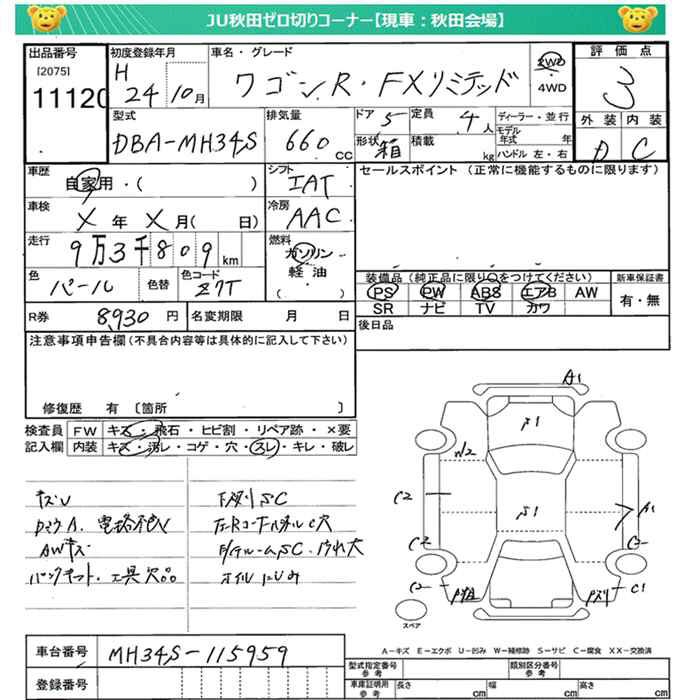 JU秋田ゼロ切りコーナー【現車：秋田会場】
出品番号 初度登録年月 車名・グレード 評価点
[2075] H 2WD
11120 24 10月 ワゴンR・FXリミテッド 4WD 3
型式 排気量 ドア 5 定員 4人 ディーラー・並行 外装 内装
DBA-MH34S 660cc 形状 箱 積載 kg モデル年式 年 ハンドル 左・右 D C
車歴 自家用・( ) シフト IAT セールスポイント（正常に機能するものに限ります）
車検 X年X月( 日) 冷房 AAC
走行 9万3千809km 燃料 ガソリン
軽油
( )
色 パール 色替 色コード Z7T 装備品（純正品に限り○をつけてください） 新車保証書
PS PW ABS エアB AW 有・無
SR ナビ TV カワ
R券 8,930円 名変期限 月 日 後日品
注意事項申告欄（不具合内容等は具体的に記入して下さい）
修復歴 有〔箇所 〕
検査員 FW キズ・飛石・ヒビ割・リペア跡・×要
記入欄 内装 キズ・汚レ・コゲ・穴・スレ・キレ・破レ
A1
S1
W2
C2 S1 A1
C2 C2
C2 C1
スペア
A－キズ E－エクボ U－凹み W－補修跡 S－サビ C－腐食 XX－交換済
車台番号 MH34S-115959
登録番号
型式指定番号 参考 類別区分番号 参考
車庫証明用 参考 長さ cm 幅 cm 高さ cm